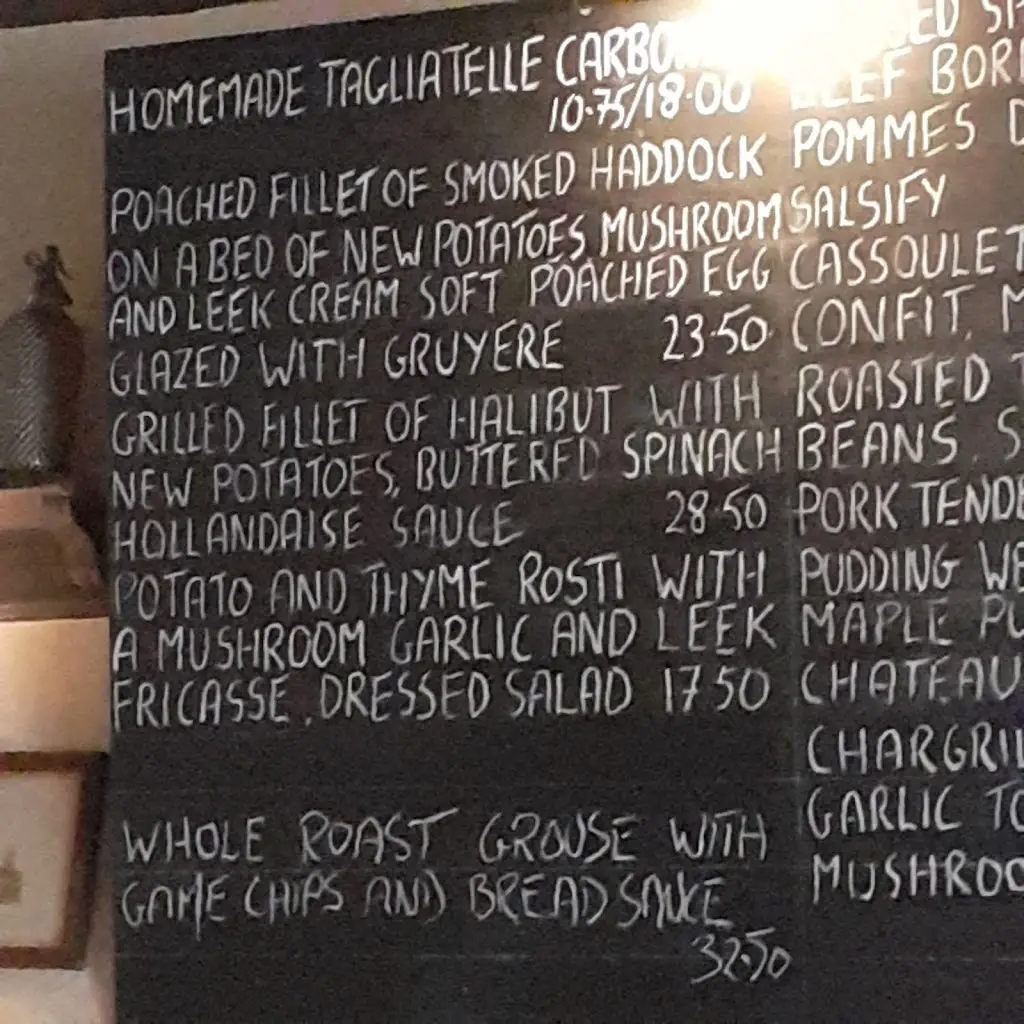 HOMEMADE TAGLIATELLE
10.75/18.00
POACHED FILLET OF SMOKED HADDOCK
ON A BED OF NEW POTATOES, MUSHROOM
AND LEEK CREAM SOFT POACHED EGG
GLAZED WITH GRUYERE 23.50
GRILLED FILLET OF HALIBUT WITH
NEW POTATOES, BUTTERED SPINACH
HOLLANDAISE SAUCE 28.50
POTATO AND THYME ROSTI WITH
A MUSHROOM GARLIC AND LEEK
FRICASSE, DRESSED SALAD 17.50
WHOLE ROAST GROUSE WITH
GAME CHIPS AND BREAD SAUCE
32.50
BEEF
POMMES
SALSIFY
CASSOULET
CONFIT,
ROASTED
BEANS,
PORK
PUDDING
MAPLE
GARLIC